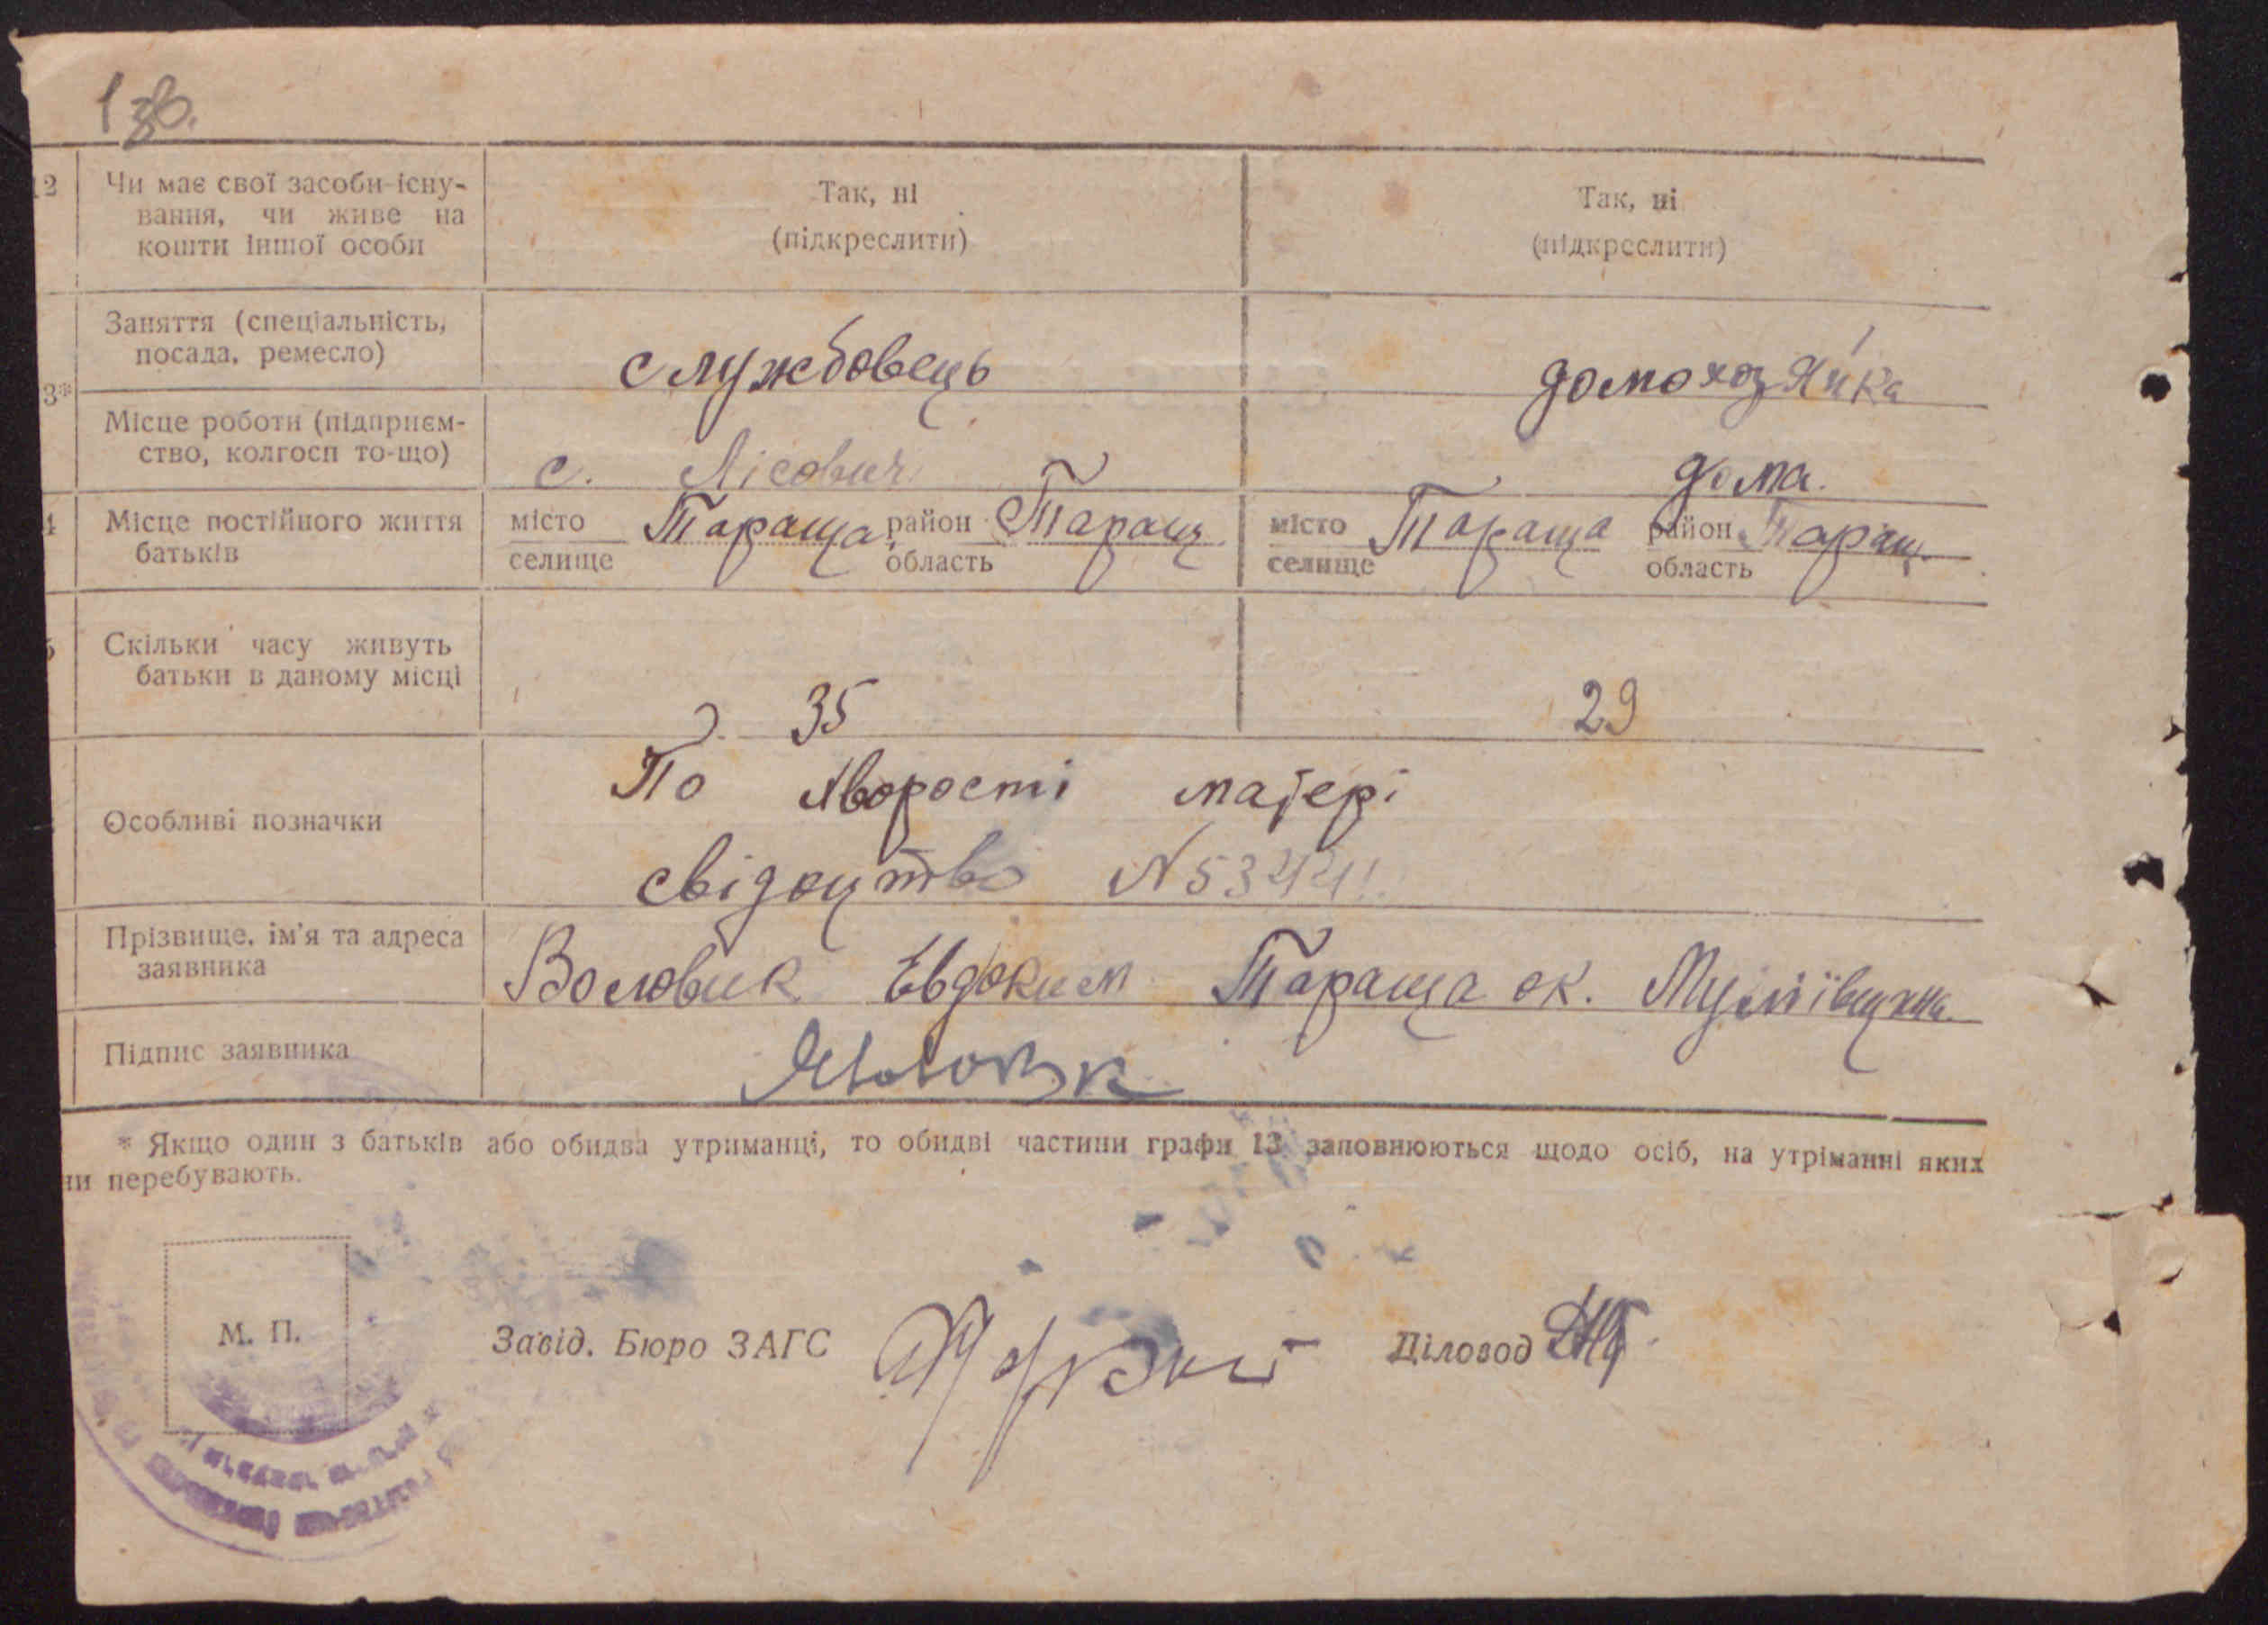 1зв.
12 Чи має свої засоби існу-
вання, чи живе на
кошти іншої особи
Так, ні
(підкреслити)
Так, ні
(підкреслити)
Заняття (спеціальність,
посада, ремесло)
службовець
домохозяйка
3*
Місце роботи (підприєм-
ство, колгосп то-що)
с. Лісович
дома.
4 Місце постійного життя
батьків
місто Тараща район Таращ
селище область
місто Тараща район Таращ.
селище область
Скільки часу живуть
батьки в даному місці
35
29
Особливі позначки
По хворості матері
свідоцтво N
Прізвище, ім'я та адреса
заявника
Воловик Евдоким Тараща ок.
Підпис заявника
* Якщо один з батьків або обидва утриманці, то обидві частини графи 13 заповнюються щодо осіб, на утріманні яких
ни перебувають.
М. П.
Завід. Бюро ЗАГС
Діловод